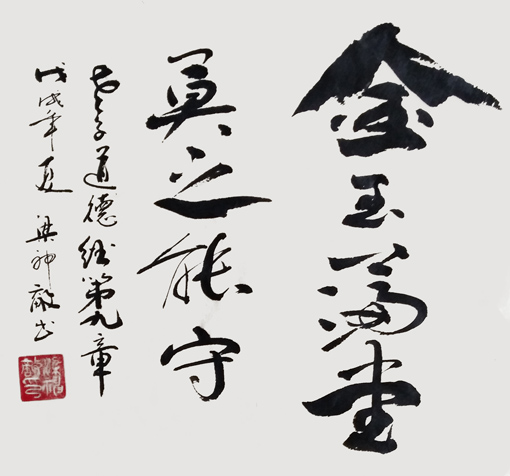 金玉满堂
莫之能守
老子道德经第九章
戊戌年夏 梁神敬书